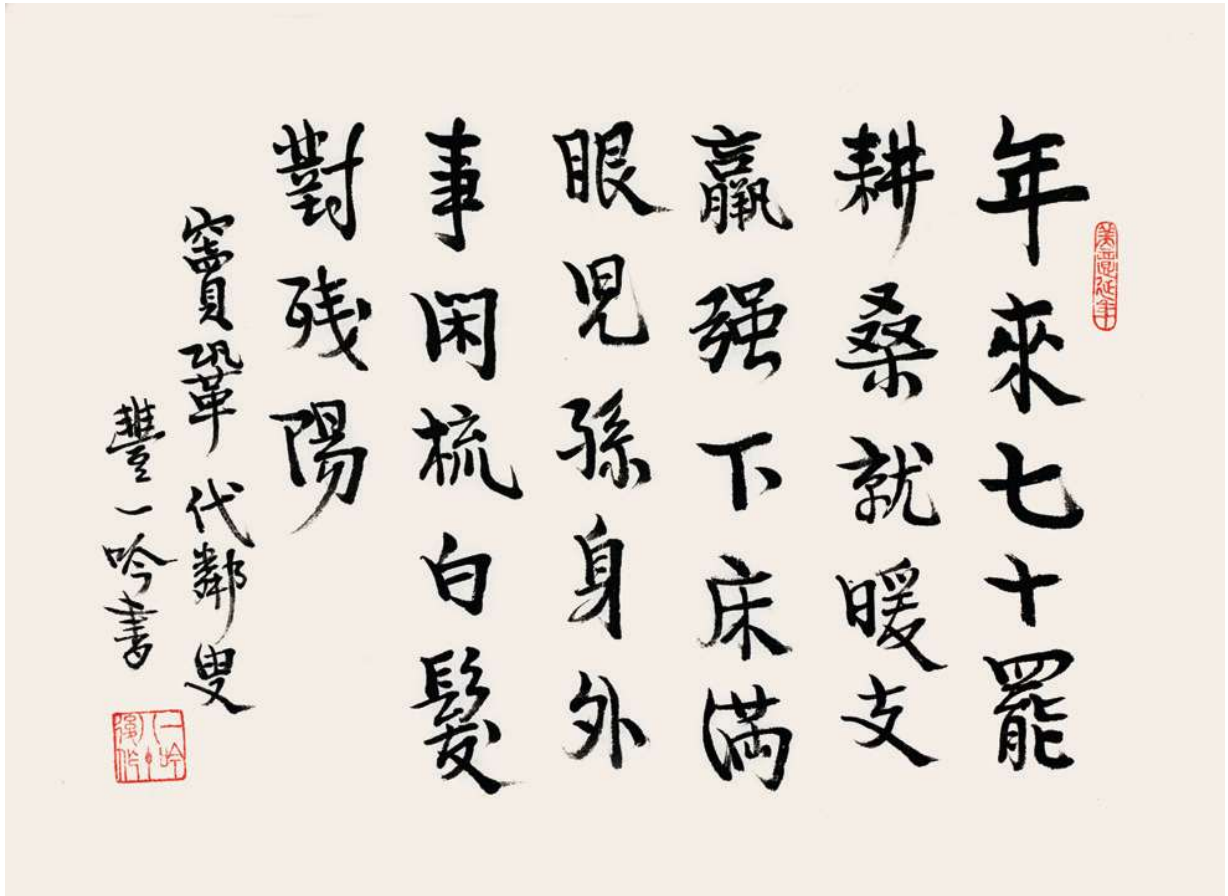 美意延年
年來七十罷
耕桑就暖支
羸强下床満
眼児孫身外
事閑梳白髮
對残陽
竇鞏 代鄰叟
豐一吟書